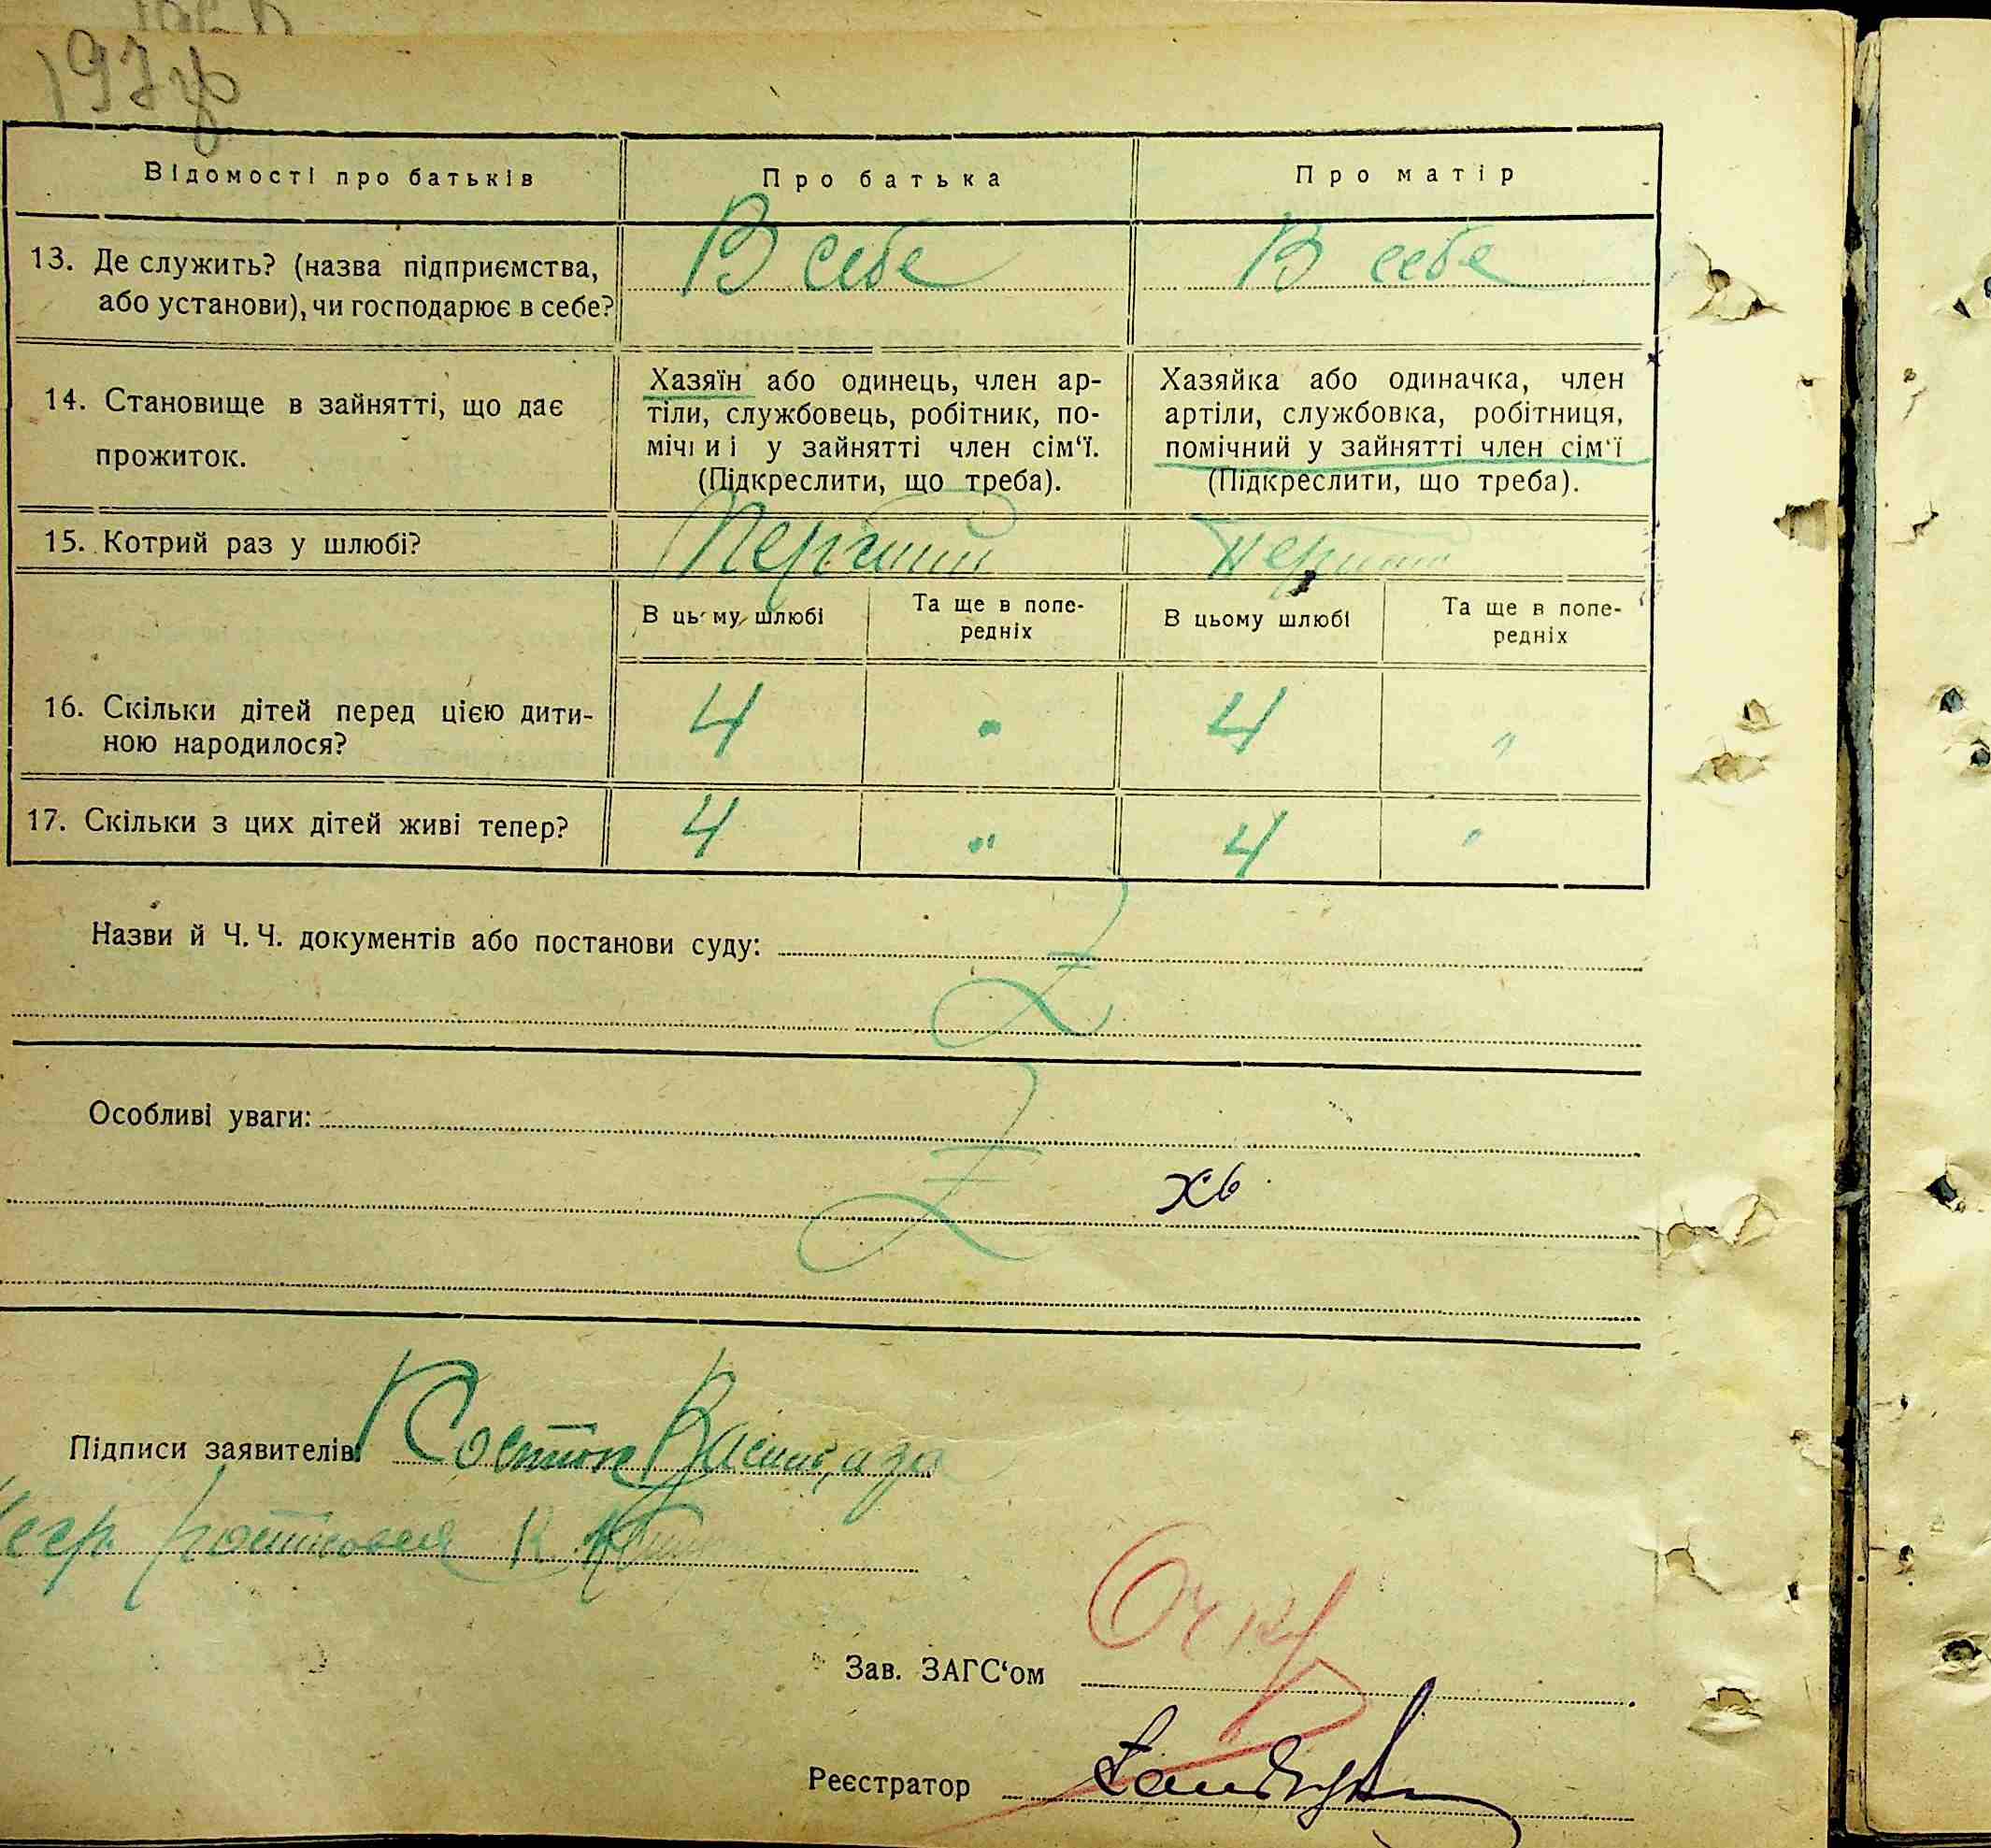 197 зв
Відомості про батьків
Про батька
Про матір
13. Де служить? (назва підприємства, або установи), чи господарює в себе?
В себе
В себе
14. Становище в зайнятті, що дає прожиток.
Хазяїн або одинець, член ар-
тіли, службовець, робітник, по-
мічн и і у зайнятті член сім‘ї.
(Підкреслити, що треба).
Хазяйка або одиначка, член
артіли, службовка, робітниця,
помічний у зайнятті член сім‘ї
(Підкреслити, що треба).
15. Котрий раз у шлюбі?
Перший
Перший
В цьому шлюбі
Та ще в попе-
редніх
В цьому шлюбі
Та ще в попе-
редніх
16. Скільки дітей перед цією дити-
ною народилося?
4
"
4
"
17. Скільки з цих дітей живі тепер?
4
"
4
"
Назви й Ч. Ч. документів або постанови суду:
Z
Особливі уваги:
Z
хь
Підписи заявителів: Костюк
Зав. ЗАГС‘ом
Реєстратор